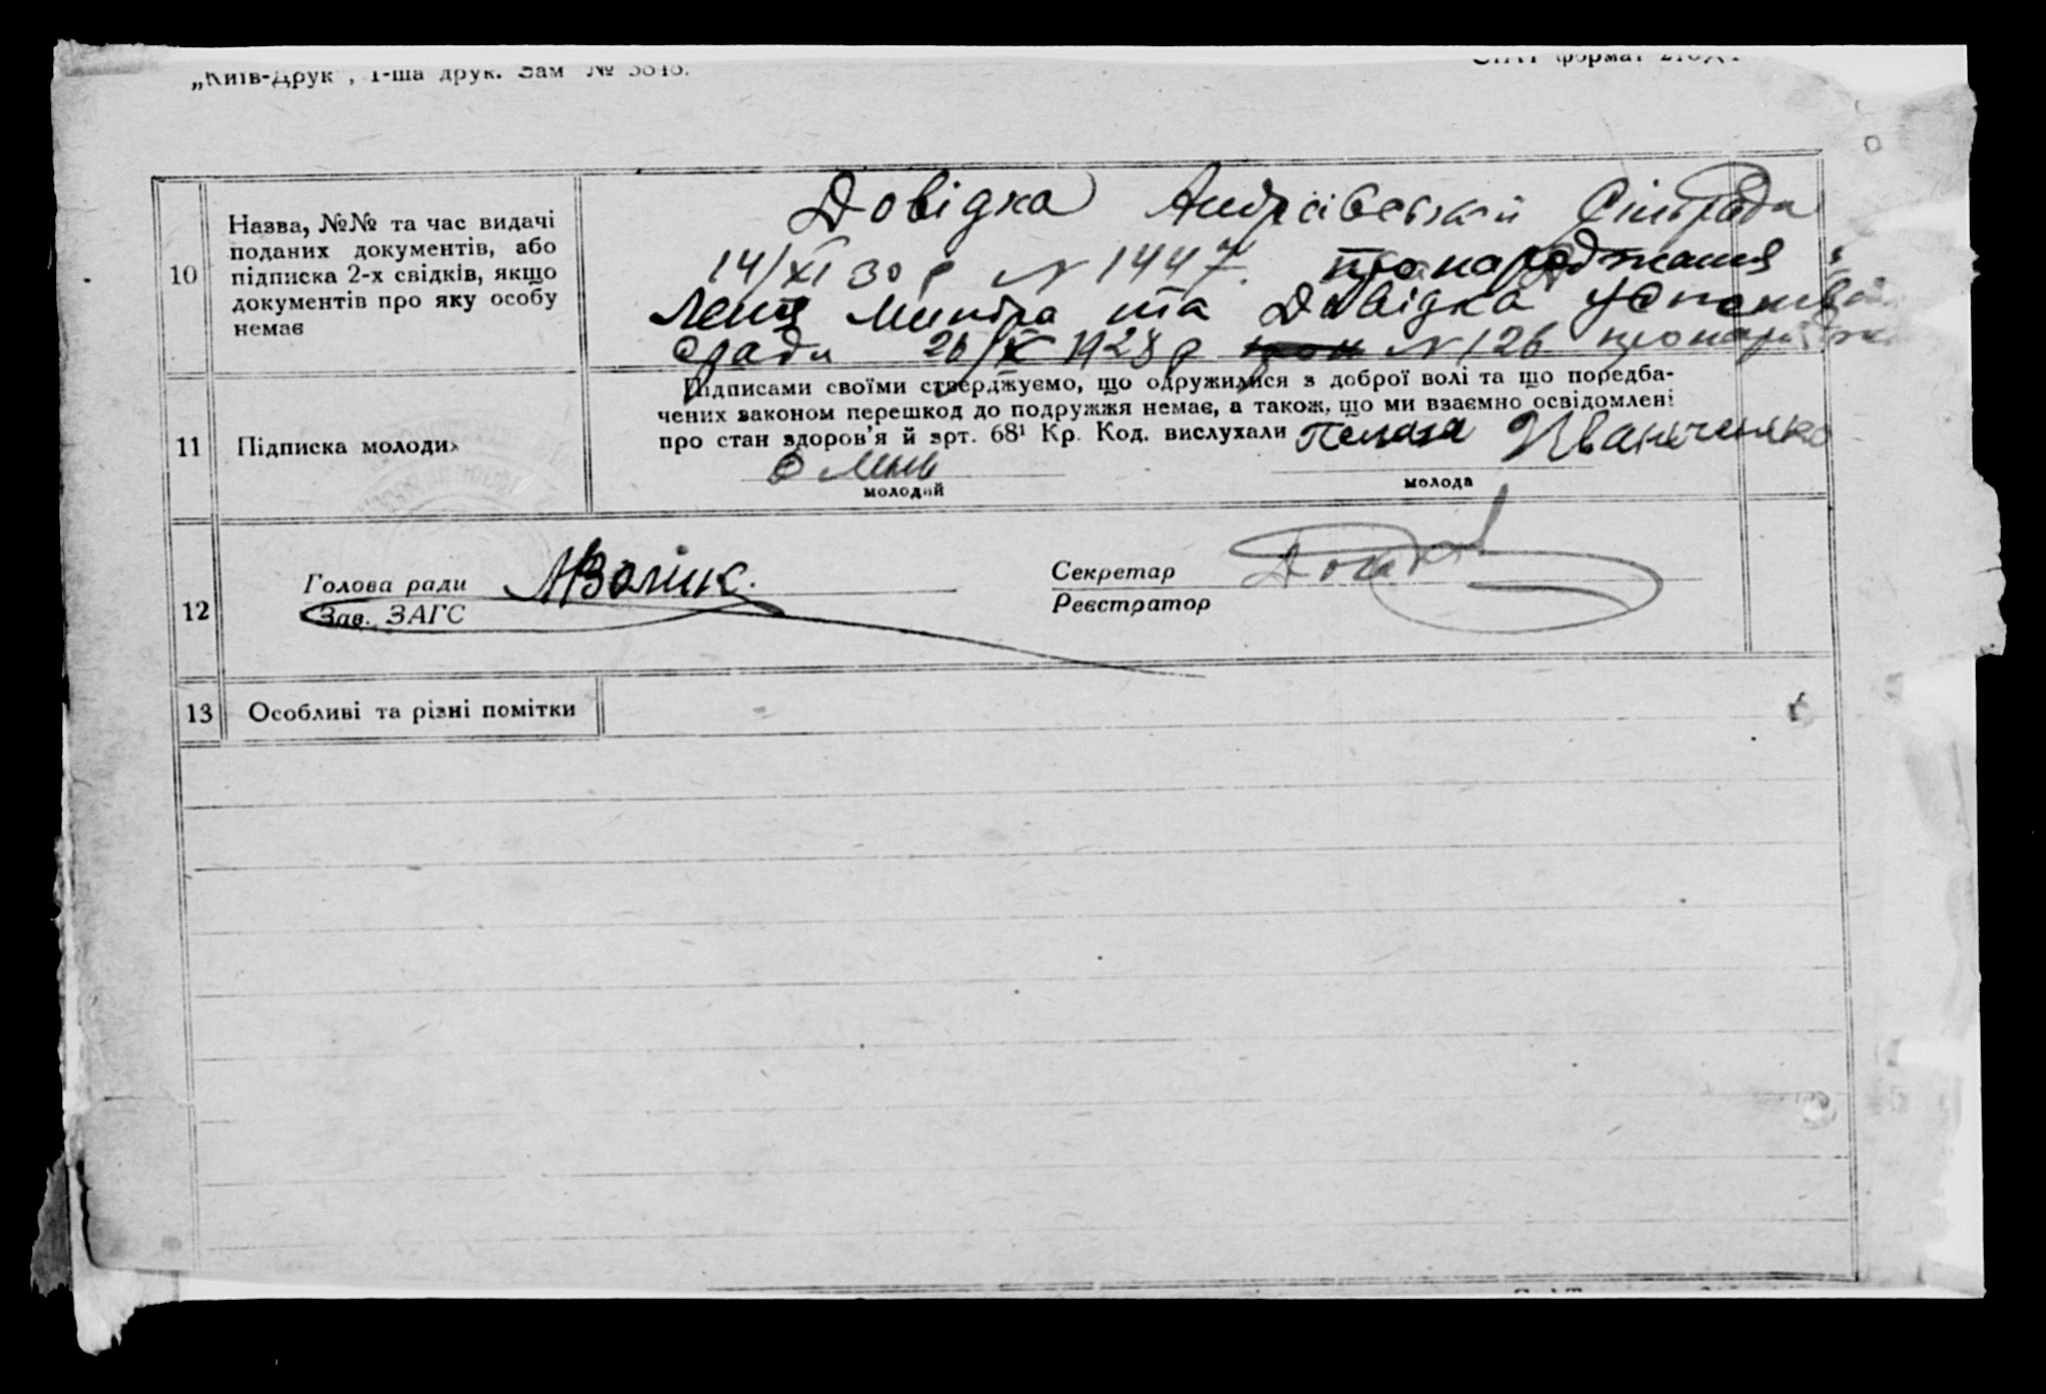 „Київ-Друк", 1-ша друк. Зам № 3848.
формат
10
Назва, №№ та час видачі
поданих документів, або
підписка 2-х свідків, якщо
документів про яку особу
немає
Довідка Андріївський Сільради
14/XI 30 р N 1447 про народження
та Довідка
сради 26/X 1928 р N 126 про народж
11
Підписка молодих
Підписами своїми стверджуємо, що одружилися з доброї волі та що поредба-
чених законом перешкод до подружжя немає, а також, що ми взаємно освідомлені
про стан здоров'я й арт. 68¹ Кр. Код. вислухали
молодий
Пелагя Иваниченко
молода
12
Голова ради
Зав. ЗАГС
Секретар
Реєстратор
13
Особливі та різні помітки